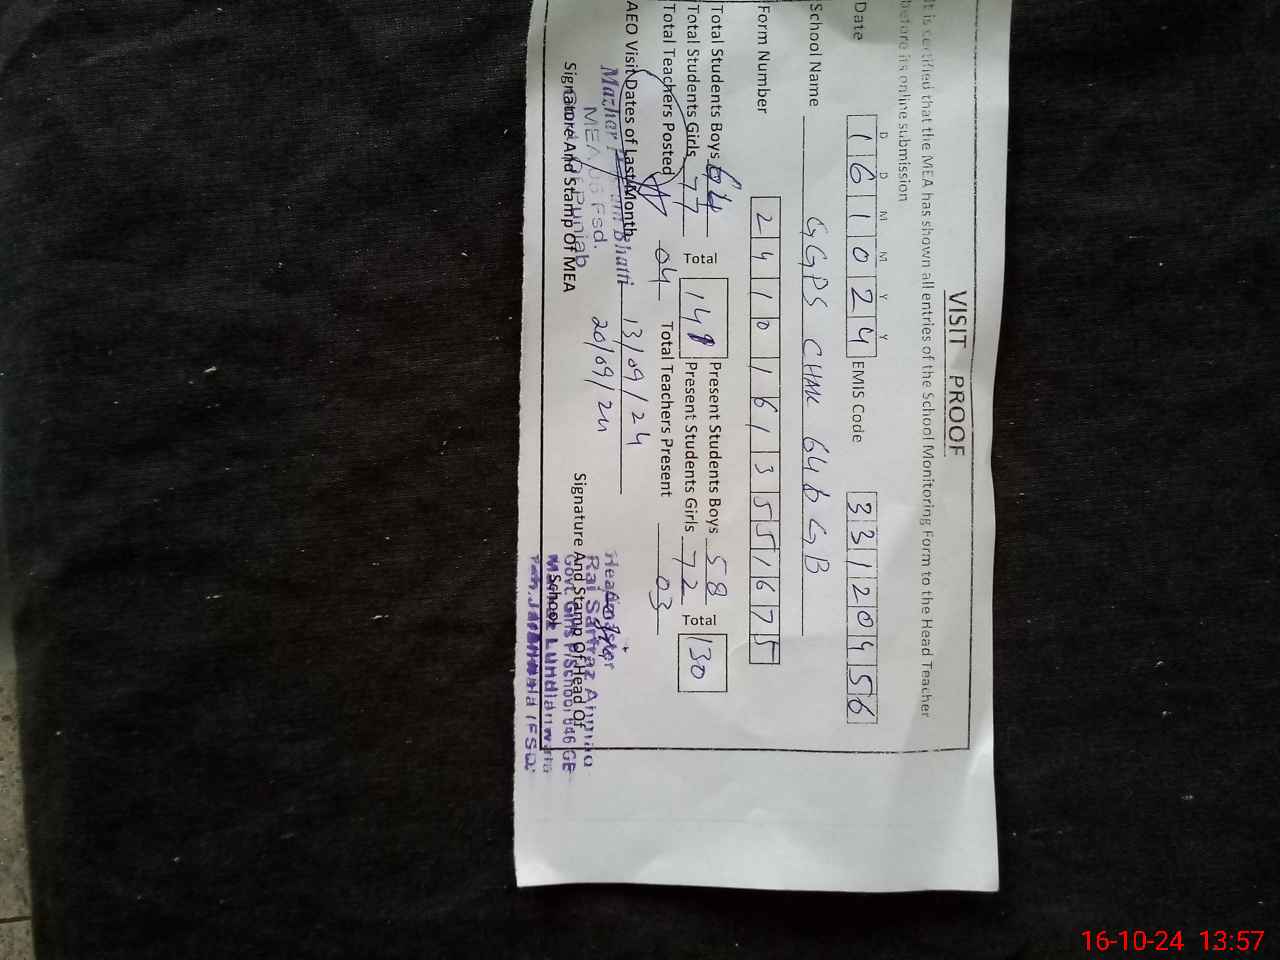 VISIT PROOF
It is certified that the MEA has shown all entries of the School Monitoring Form to the Head Teacher
before its online submission
D D M M Y Y
Date 1 6 1 0 2 4 EMIS Code 3 3 1 2 0 4 5 6
School Name GGPS CHAK 646 GB
Form Number 2 4 1 0 1 6 1 3 5 5 1 6 7 5
Total Students Boys 64 Present Students Boys 58
Total Students Girls 77 Total 141 Present Students Girls 72 Total 130
Total Teachers Posted 04 Total Teachers Present 03
AEO Visit Dates of Last Month 13/09/24
20/09/24
Mazhar Bhatti
MEA Fsd.
Punjab
Signature And Stamp Of MEA
Signature And Stamp Of Head Of
School
Rai Sarfraz
Govt. Girls P/School 646 GB
16-10-24 13:57